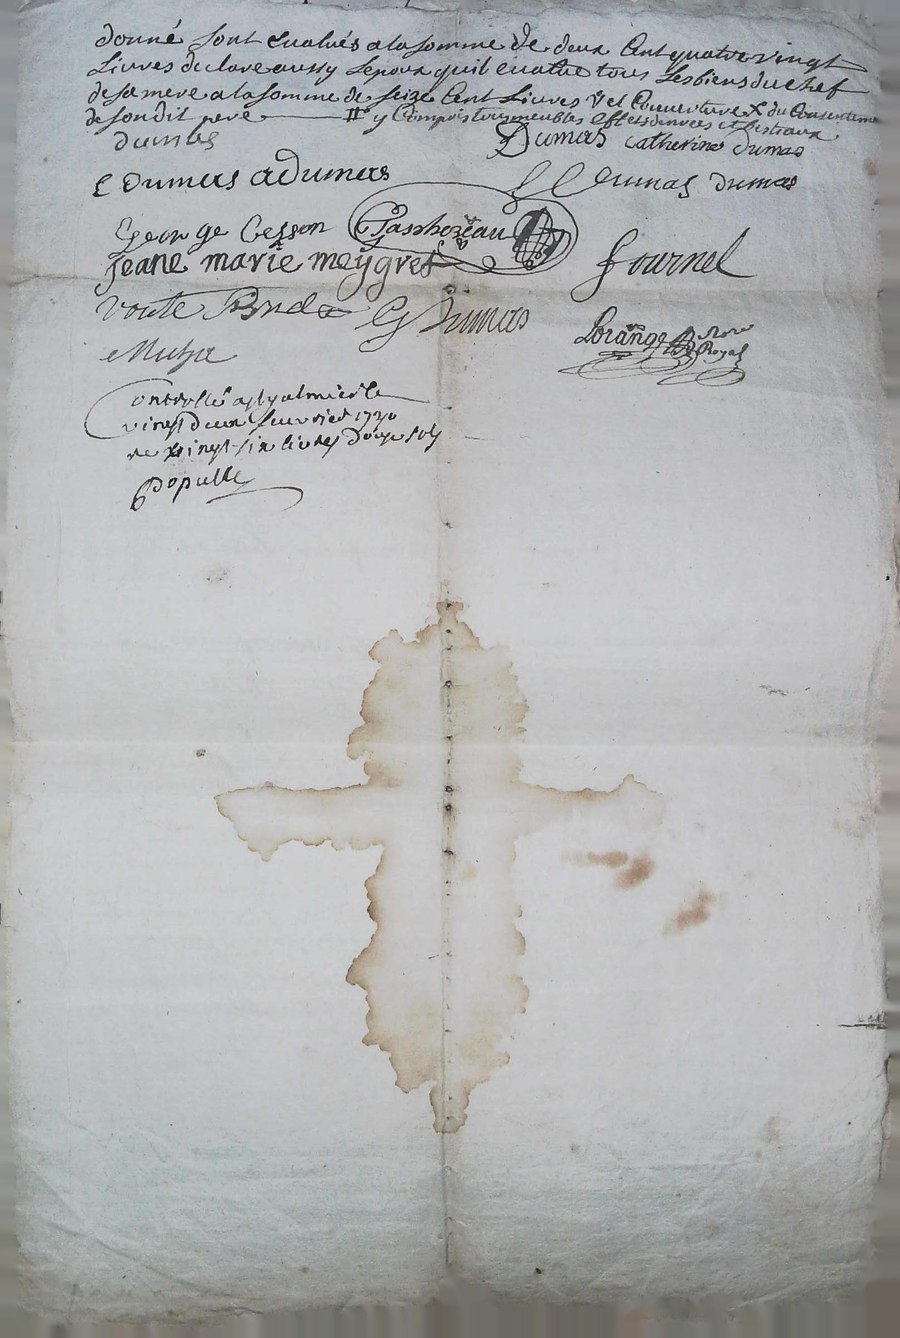 donné sont Evalués a la somme de deux Cent quatre vingt
Livres declare aussy Lepoux quil evalue tous Les biens du chef
de sa mere a la somme de seize Cent Livres vel Couverture X du Consenteme
de son dit pere # y Compris tous meubles effets danrées et bestiaux
dumas Dumas catherine dumas
C Dumas a dumas Dumas dumas
George Cesson
Jeane marie meygret fournel
voute G Dumas
Lorange Nore Royal
Controllé a
vingt deux feuvrier 1730
vingt six livres douze sols